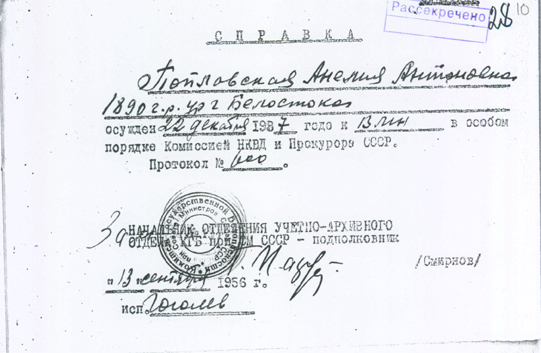 Рассекречено
28
10
СПРАВКА
Тепловская Анелия Антоновна
1890 г.р. ур г Белостока
осужден 22 декабря 1937 года к ВМН в особом
порядке Комиссией НКВД и Прокурора СССР.
Протокол № 600.
За НАЧАЛЬНИК ОТДЕЛЕНИЯ УЧЕТНО-АРХИВНОГО
ОТДЕЛА КГБ при СМ СССР - подполковник
/Смирнов/
"13 сентября 1956 г.
исп Гоголев